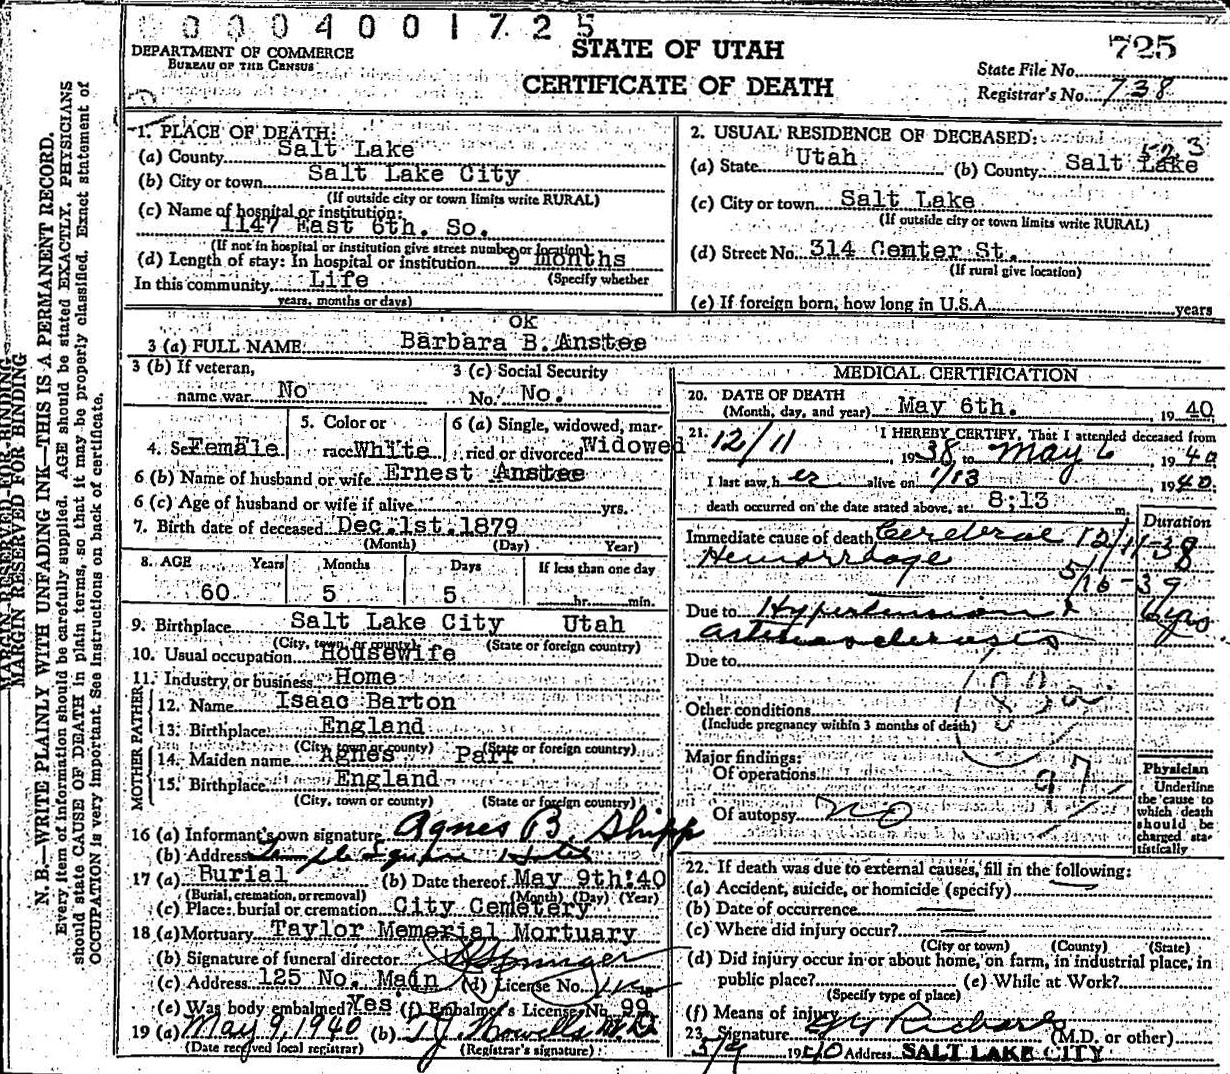 0 0 0 4 0 0 1 7 2 5
DEPARTMENT OF COMMERCE
BUREAU OF THE CENSUS
STATE OF UTAH
CERTIFICATE OF DEATH
725
State File No.
Registrar's No. 738
MARGIN RESERVED FOR BINDING
MARGIN RESERVED FOR BINDING
N. B.—WRITE PLAINLY WITH UNFADING INK—THIS IS A PERMANENT RECORD.
Every item of information should be carefully supplied. AGE should be stated EXACTLY. PHYSICIANS
should state CAUSE OF DEATH in plain terms, so that it may be properly classified. Exact statement of
OCCUPATION is very important. See instructions on back of certificate.
1. PLACE OF DEATH:
(a) County Salt Lake
(b) City or town Salt Lake City
(If outside city or town limits write RURAL)
(c) Name of hospital or institution:
1147 East 6th. So.
(If not in hospital or institution give street number or location)
(d) Length of stay: In hospital or institution 9 months
(Specify whether
In this community Life
years, months or days)
2. USUAL RESIDENCE OF DECEASED:
(a) State Utah (b) County Salt Lake
(c) City or town Salt Lake
(If outside city or town limits write RURAL)
(d) Street No. 314 Center St.
(If rural give location)
(e) If foreign born, how long in U.S.A. years
OK
3 (a) FULL NAME Barbara B. Anstee
3 (b) If veteran,
name war No
3 (c) Social Security
No. No.
4. Sex Female
5. Color or
race White
6 (a) Single, widowed, mar-
ried or divorced Widowed
6 (b) Name of husband or wife Ernest Anstee
6 (c) Age of husband or wife if alive yrs.
7. Birth date of deceased Dec. 1st. 1879
(Month) (Day) Year)
8. AGE Years Months Days If less than one day
60 5 5 hr. min.
9. Birthplace Salt Lake City Utah
(City, town, or county) (State or foreign country)
10. Usual occupation Housewife
11. Industry or business Home
FATHER
12. Name Isaac Barton
13. Birthplace England
(City, town or county) (State or foreign country)
MOTHER
14. Maiden name Agnes Parr
15. Birthplace England
(City, town or county) (State or foreign country)
16 (a) Informant's own signature Agnes B. Shipp
(b) Address Temple Square Hotel
17 (a) Burial (b) Date thereof May 9th!40
(Burial, cremation, or removal) (Month) (Day) (Year)
(c) Place: burial or cremation City Cemetery
18 (a) Mortuary Taylor Memorial Mortuary
(b) Signature of funeral director
(c) Address 125 No. Main (d) License No.
(e) Was body embalmed? Yes. (f) Embalmer's License No. 99
19 (a) May 9, 1940 (b) T.J. Howells M.D.
(Date received local registrar) (Registrar's signature)
MEDICAL CERTIFICATION
20. DATE OF DEATH
(Month, day, and year) May 6th. 1940
21. I HEREBY CERTIFY, That I attended deceased from
12/11, 1938, to May 6, 1940
I last saw her alive on 1/13 1940.
death occurred on the date stated above, at 8:13 m.
Duration
Immediate cause of death Cerebral 12/11-38
Hemorrhage 5/16-39
Due to Hypertension & 6 yrs.
arteriosclerosis
Due to
83a
Other conditions
(Include pregnancy within 3 months of death)
Major findings:
Of operations
97
Of autopsy no
Physician
Underline
the cause to
which death
should be
charged sta-
tistically
22. If death was due to external causes, fill in the following:
(a) Accident, suicide, or homicide (specify)
(b) Date of occurrence
(c) Where did injury occur?
(City or town) (County) (State)
(d) Did injury occur in or about home, on farm, in industrial place, in
public place? (e) While at Work?
(Specify type of place)
(f) Means of injury
23. Signature G G Richards (M.D. or other)
5/9 1940 Address SALT LAKE CITY